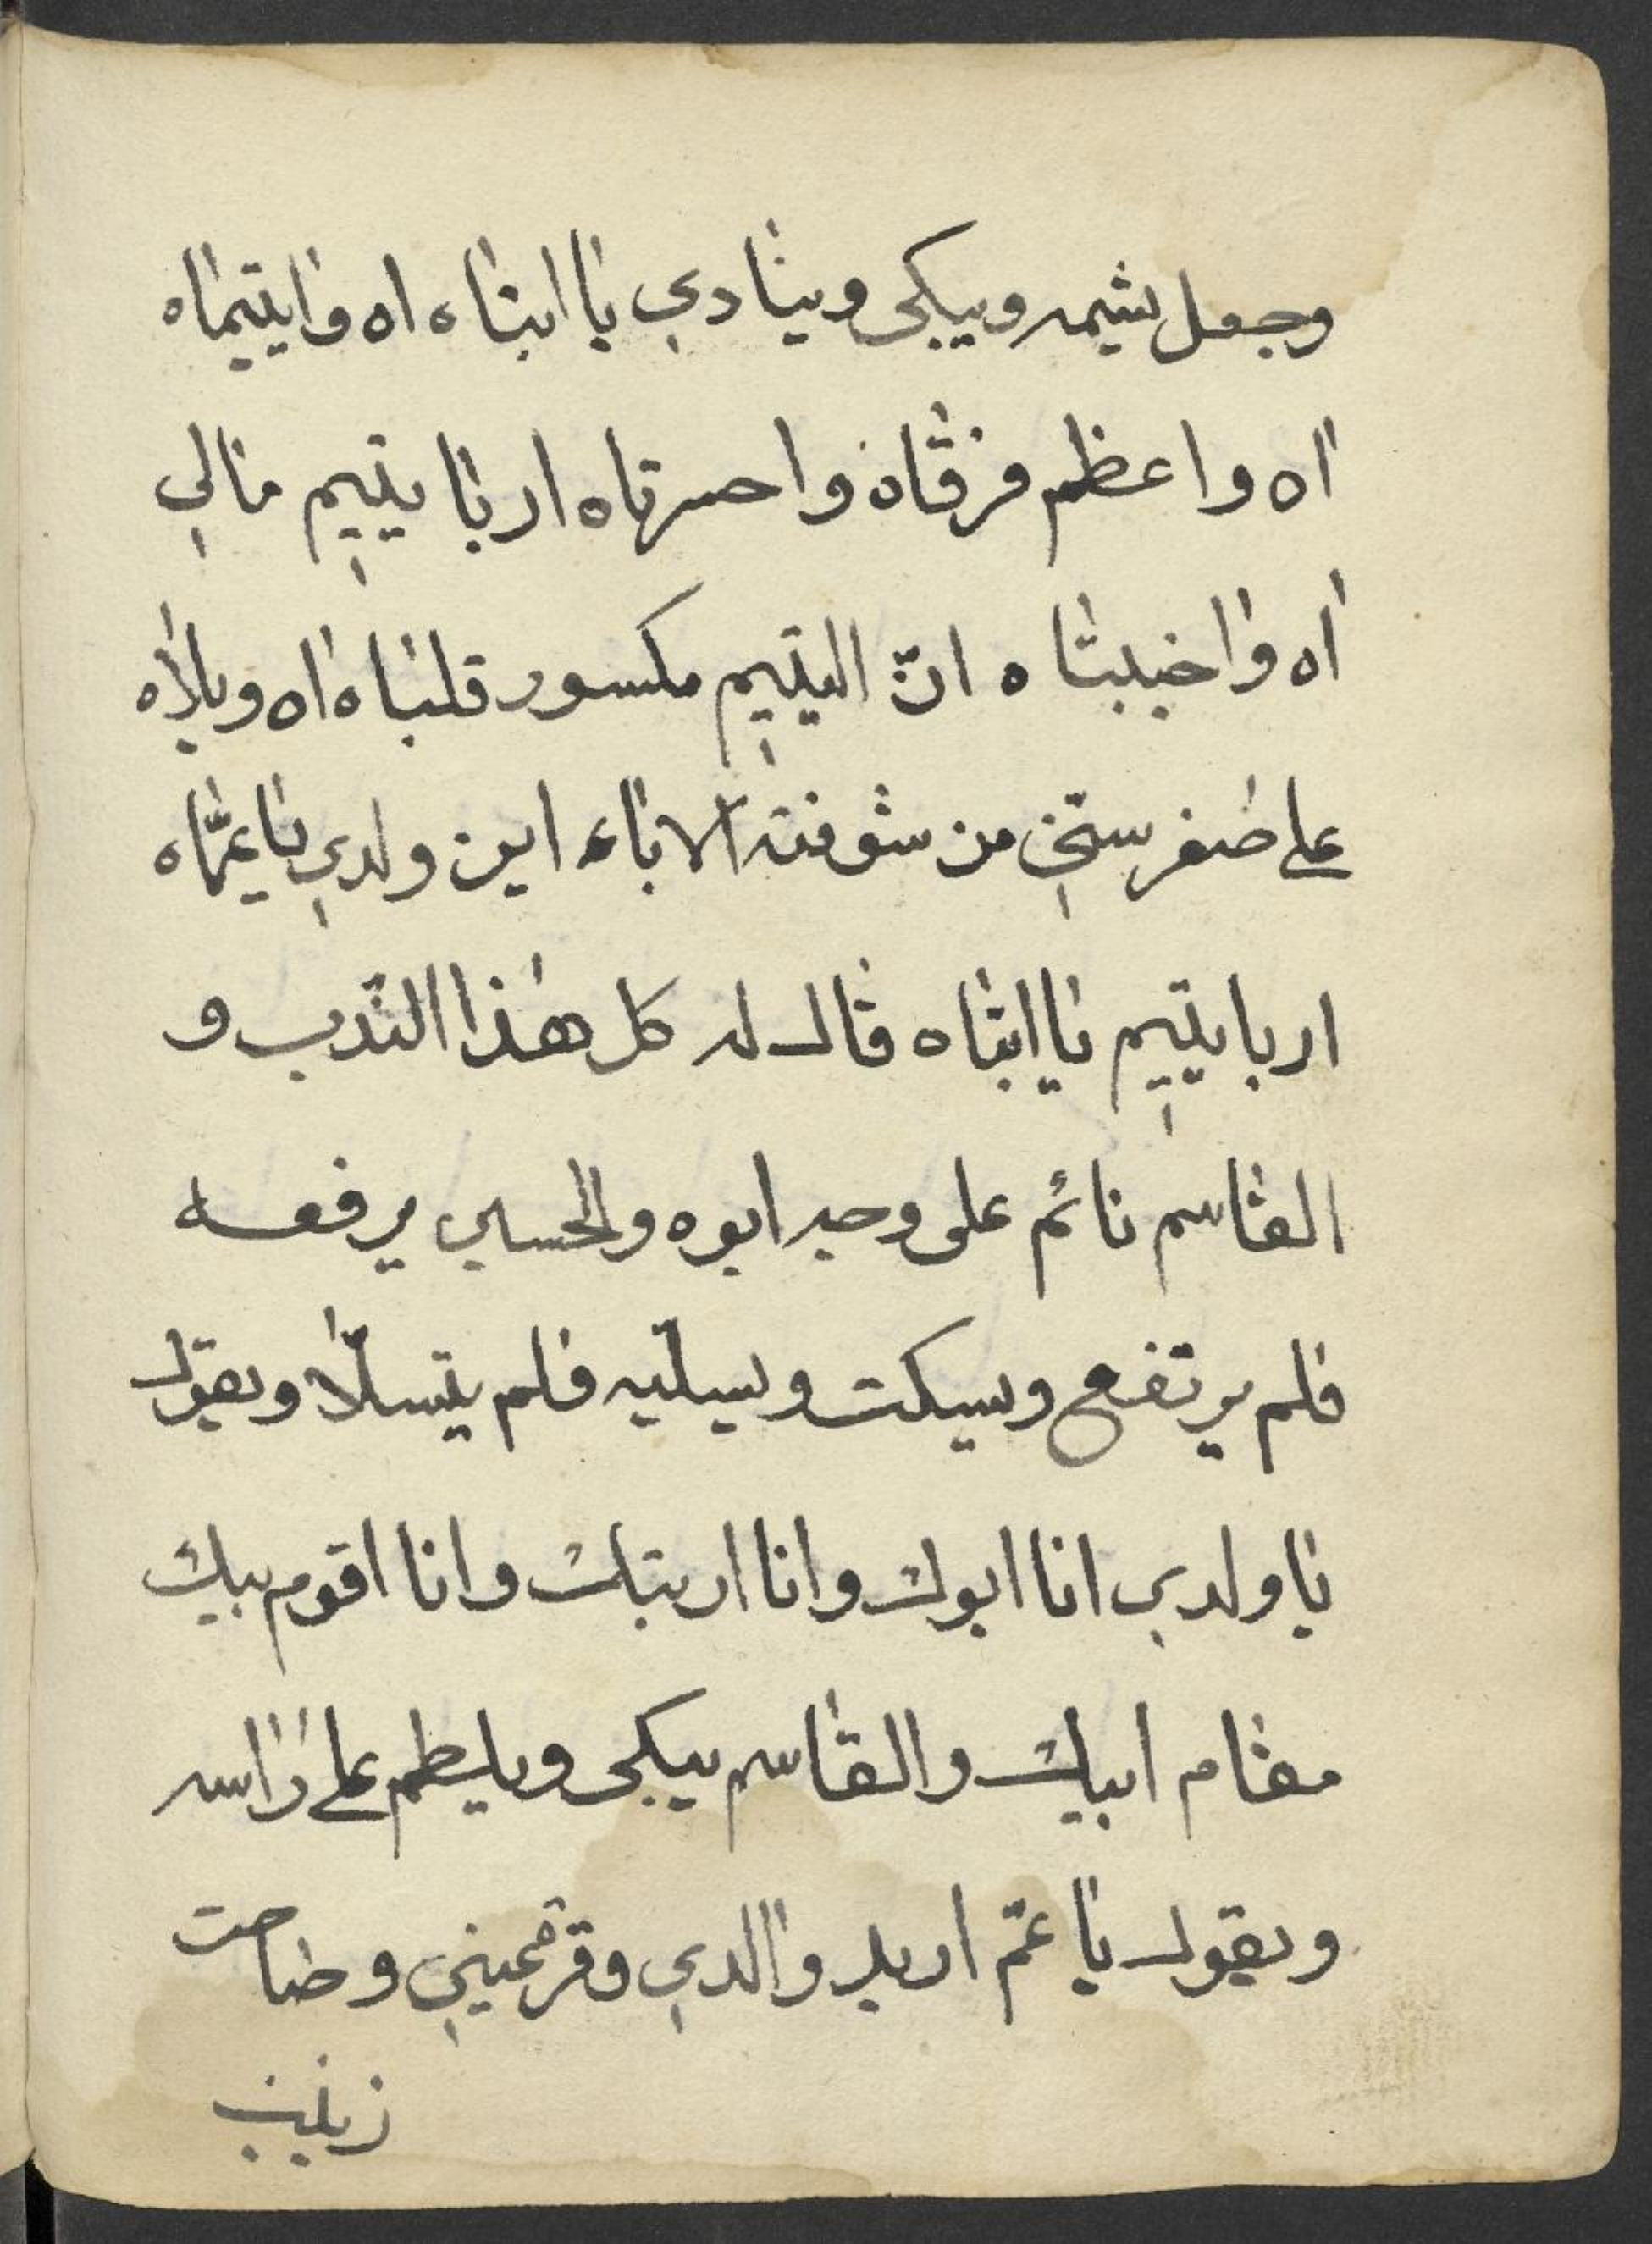 وجعل يشمه ويبكى وينادي يا ابتاه اه وايتيماه
اه واعظم فرقاه واحسرتاه اربا يتيم مالي
اه واخيبتاه انّ اليتيم مكسور قلباه اه ويلاه
على صغر سنّي من شوفته الاباء اين ولدي يا عمّاه
اربا يتيم يا ابتاه قال له كل هذا الندب و
القاسم نائم على وجه ابوه والحسين يرفعه
فلم يرتفع ويسكت ويسلّيه فلم يتسلّا ويقول
يا ولدي انا ابوك وانا اربيك وانا اقوم بيك
مقام ابيك والقاسم يبكى ويلطم على راسه
ويقول يا عمّ اريد والدي وقرة عيني وصاحت
زينب